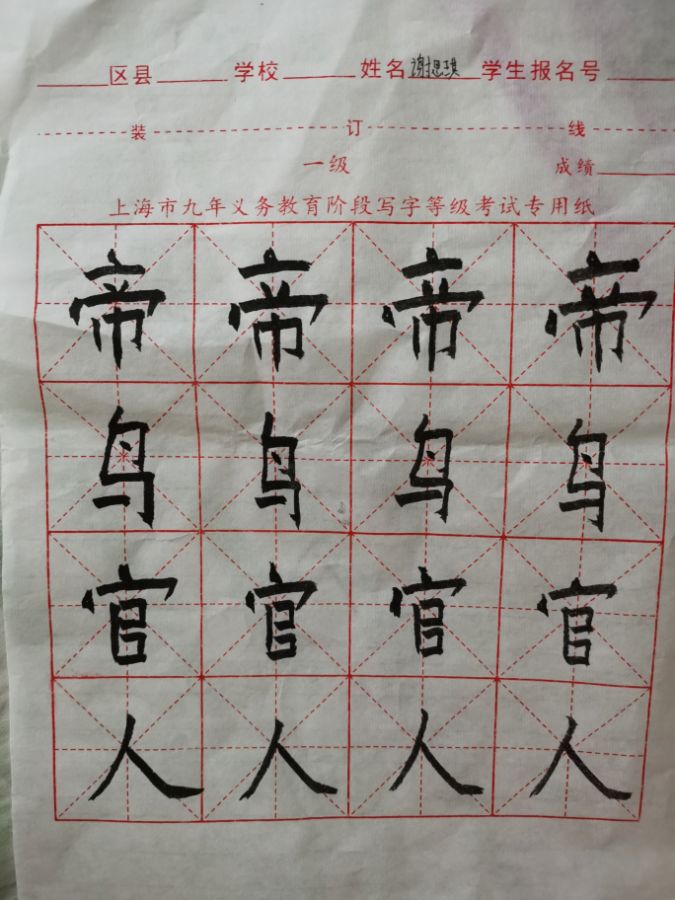 区县 学校 姓名 谢思琪 学生报名号
装 订 线
一级 成绩
上海市九年义务教育阶段写字等级考试专用纸
帝 帝 帝 帝
鸟 鸟 鸟 鸟
官 官 官 官
人 人 人 人